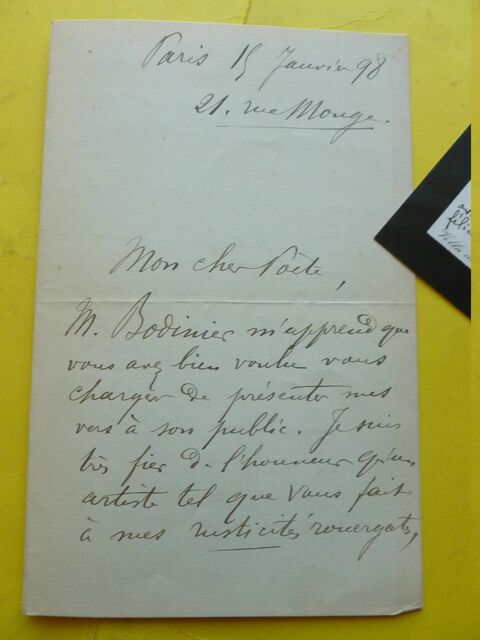 Paris 15 Janvier 98
21. rue Monge.
Mon cher Poète,
M. Bodinier m'apprend que
vous avez bien voulu vous
charger de présenter mes
vers à son public. Je suis
très fier de l'honneur qu'un
artiste tel que vous fait
à mes rusticités rouergates,